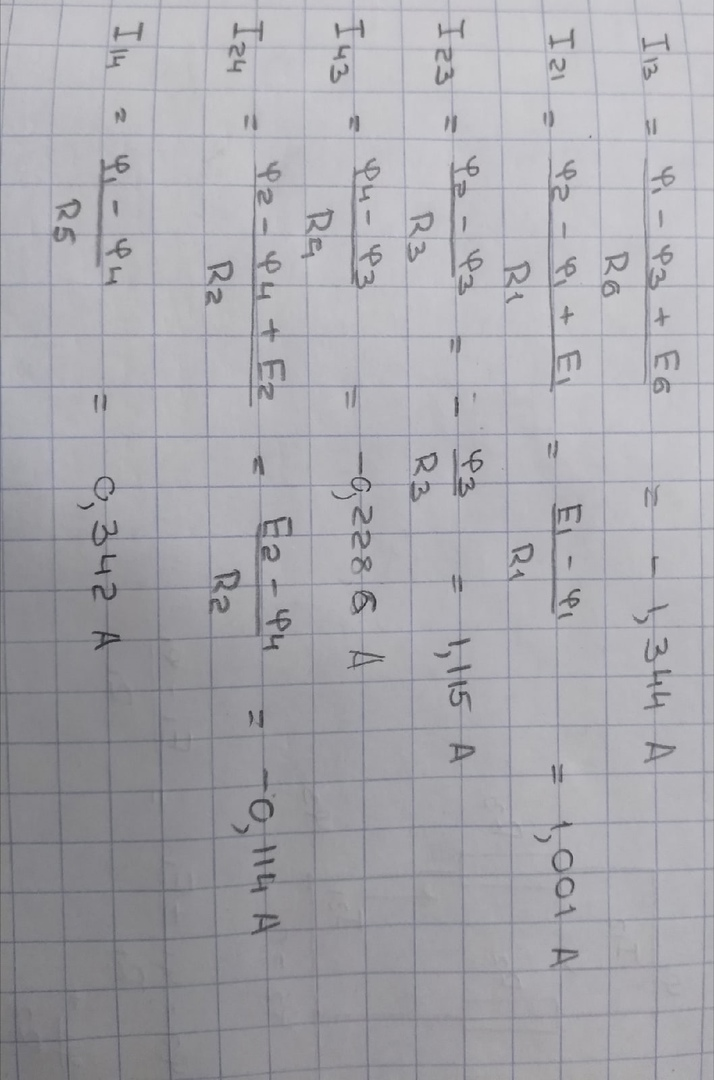 I₁₃ = (φ₁ - φ₃ + E₆)/R₆ = - 1,344 A
I₂₁ = (φ₂ - φ₁ + E₁)/R₁ = (E₁ - φ₁)/R₁ = 1,001 A
I₂₃ = (φ₂ - φ₃)/R₃ = - φ₃/R₃ = 1,115 A
I₄₃ = (φ₄ - φ₃)/R₄ = -0,2286 A
I₂₄ = (φ₂ - φ₄ + E₂)/R₂ = (E₂ - φ₄)/R₂ = -0,114 A
I₁₄ = (φ₁ - φ₄)/R₅ = 0,342 A